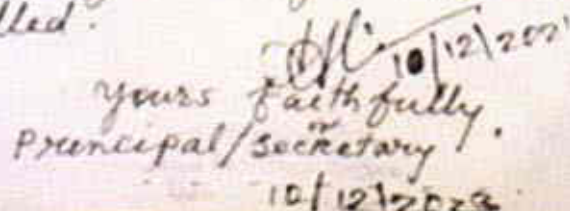 lled.
10/12/202
Yours faithfully
Principal/secretary.
or
10/12/2023